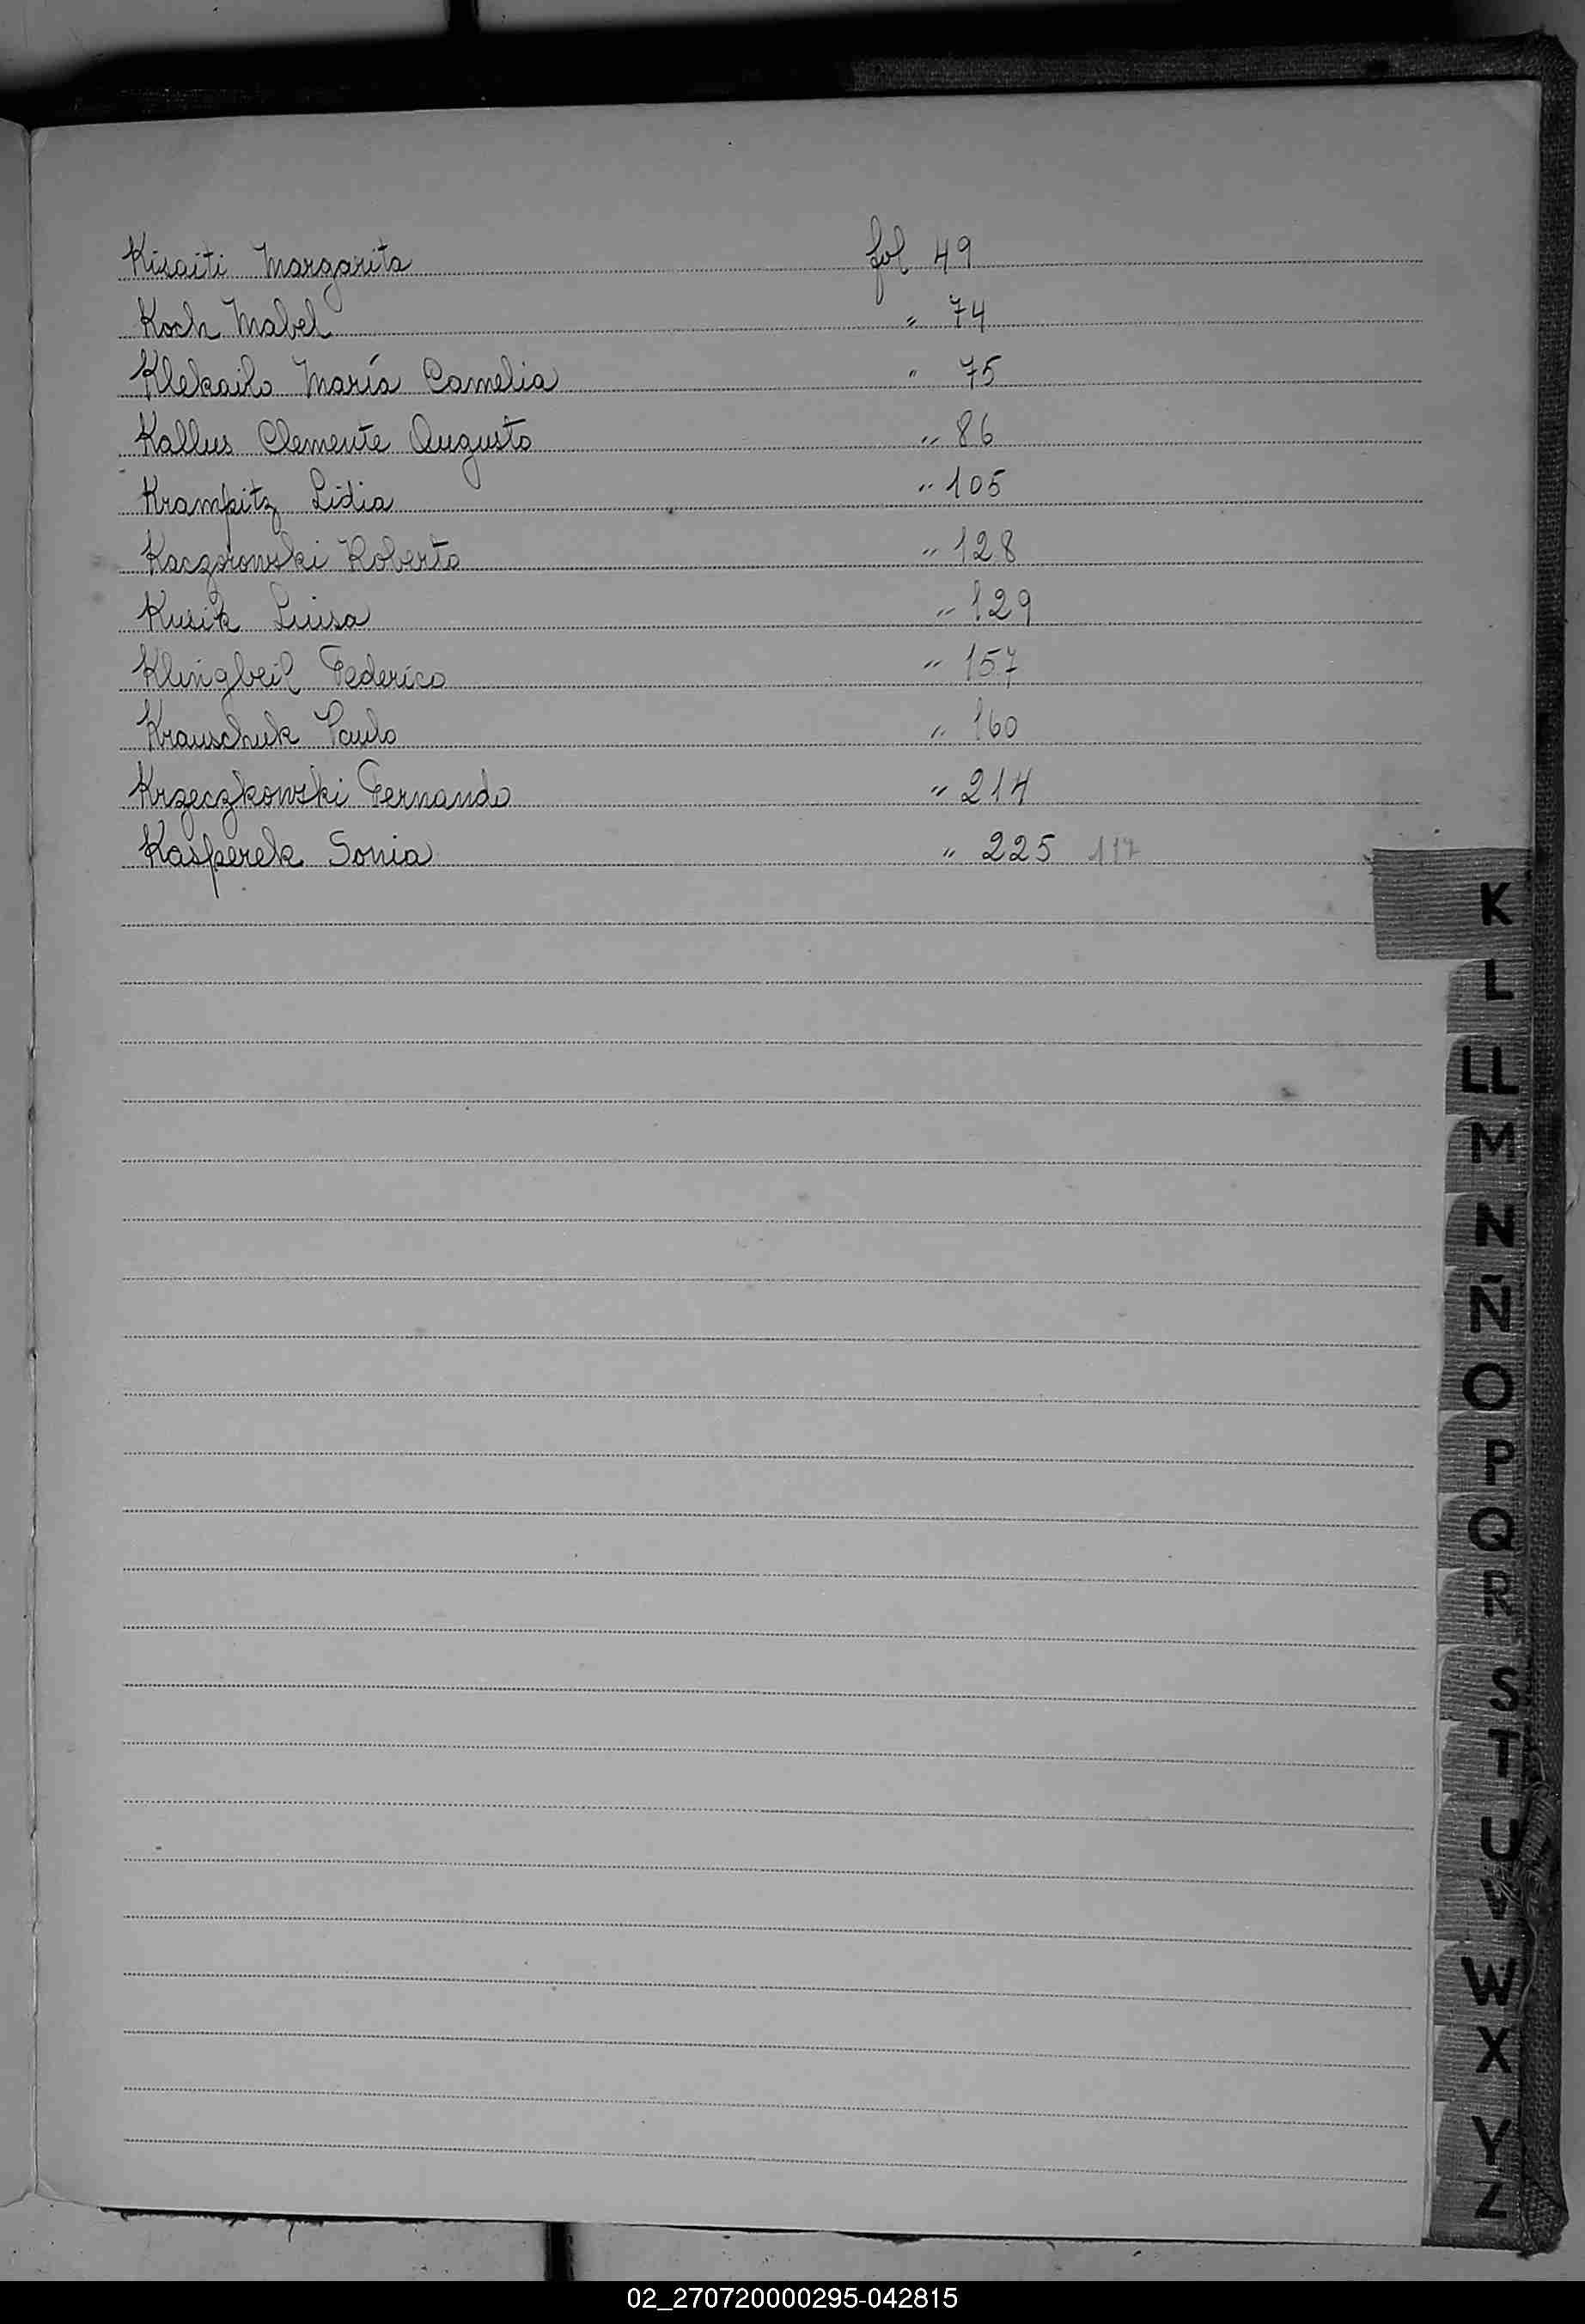 Kisaiti Margarita fol 49
Koch Mabel " 74
Klekailo María Camelia " 75
Kallus Clemente Augusto " 86
Krampitz Lidia " 105
Kaczorowski Roberto " 128
Kusik Luisa " 129
Klingbeil Federico " 157
Krauschuk Paulo " 160
Krzeczkowski Fernando " 214
Kasperek Sonia " 225 117
K
L
LL
M
N
Ñ
O
P
Q
R
S
T
U
V
W
X
Y
Z
02_270720000295-042815